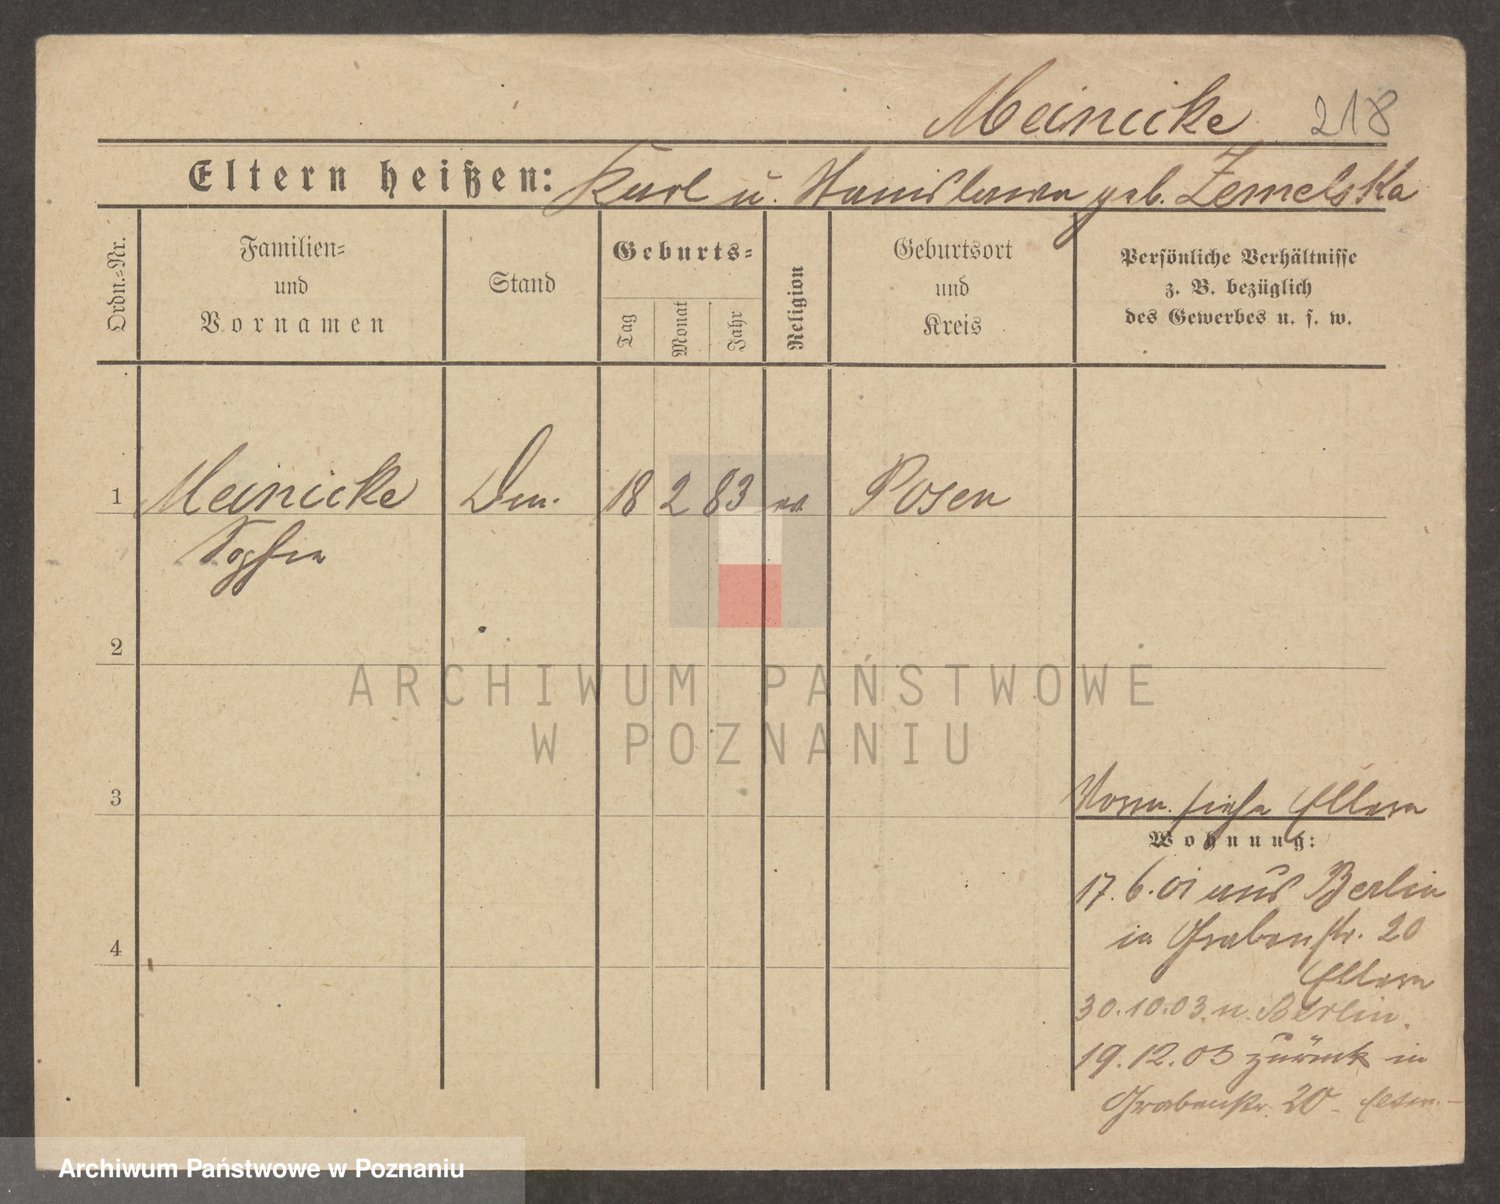 Meinicke 218
Eltern heißen: Karl u. Stanislawa geb. Zemelska
Ordn.=Nr.
Familien=
und
Vornamen
Stand
Geburts=
Tag
Monat
Jahr
Religion
Geburtsort
und
Kreis
Persönliche Verhältnisse
z. B. bezüglich
des Gewerbes u. s. w.
1 Meinicke 18 2 83 Posen
Sophie
2
ARCHIWUM PAŃSTWOWE
W POZNANIU
3
siehe Eltern
Wohnung:
17.6.01 aus Berlin
in Grabenstr. 20
Eltern
4
30.10.03. n. Berlin.
19.12.03 zurück in
Grabenstr. 20
Archiwum Państwowe w Poznaniu